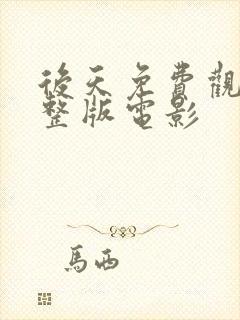 後天免費觀
整版電影
馬西